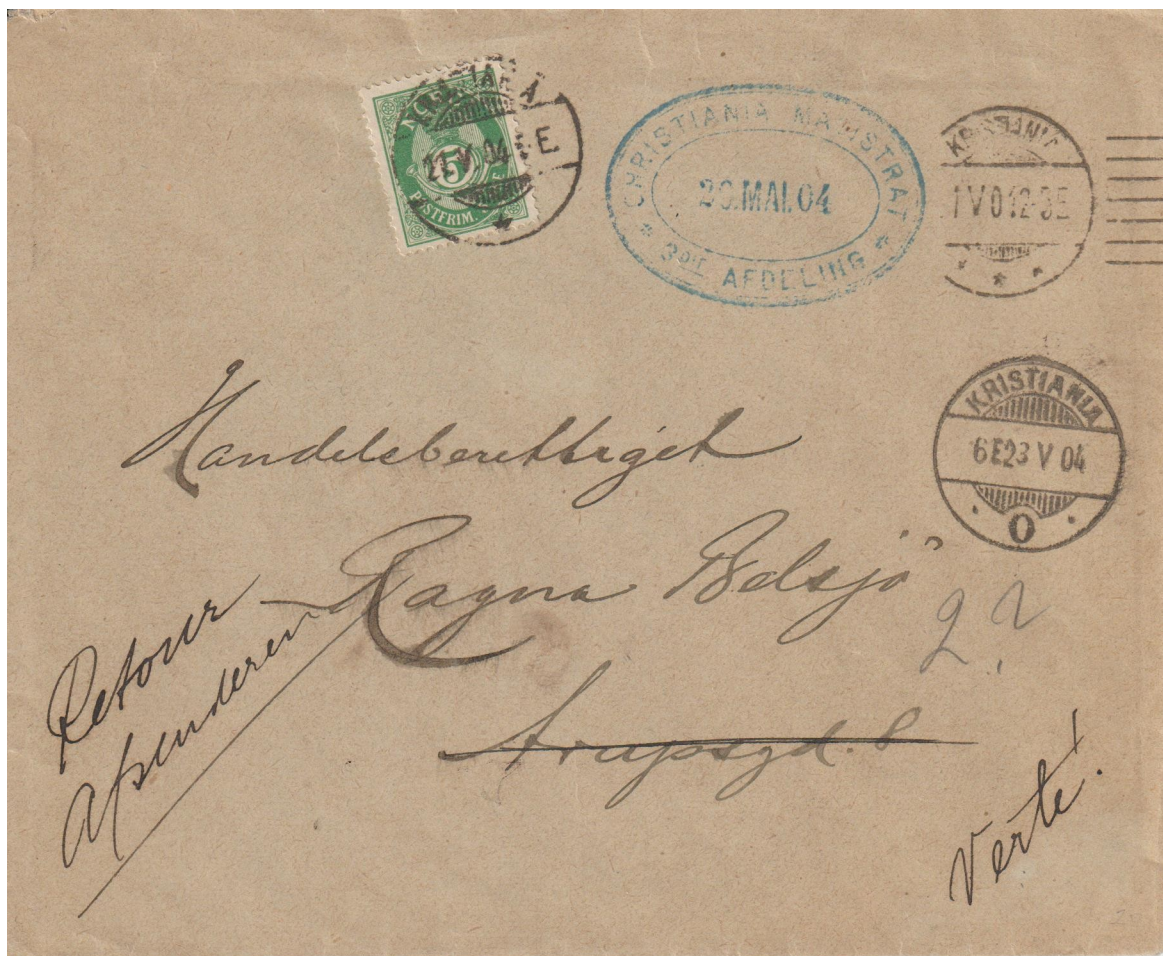 5
POSTFRIM.
21.V.04 E
CHRISTIANIA MAGISTRAT
26.MAI.04
* 3DIE AFDELING *
KRISTIANIA
1 V 04 2-3E
KRISTIANIA
6E23 V 04
O
Handelsberettiget
Ragna Belsjö
Arupsgd. 8
2?
Retour
Afsenderen
Verte!